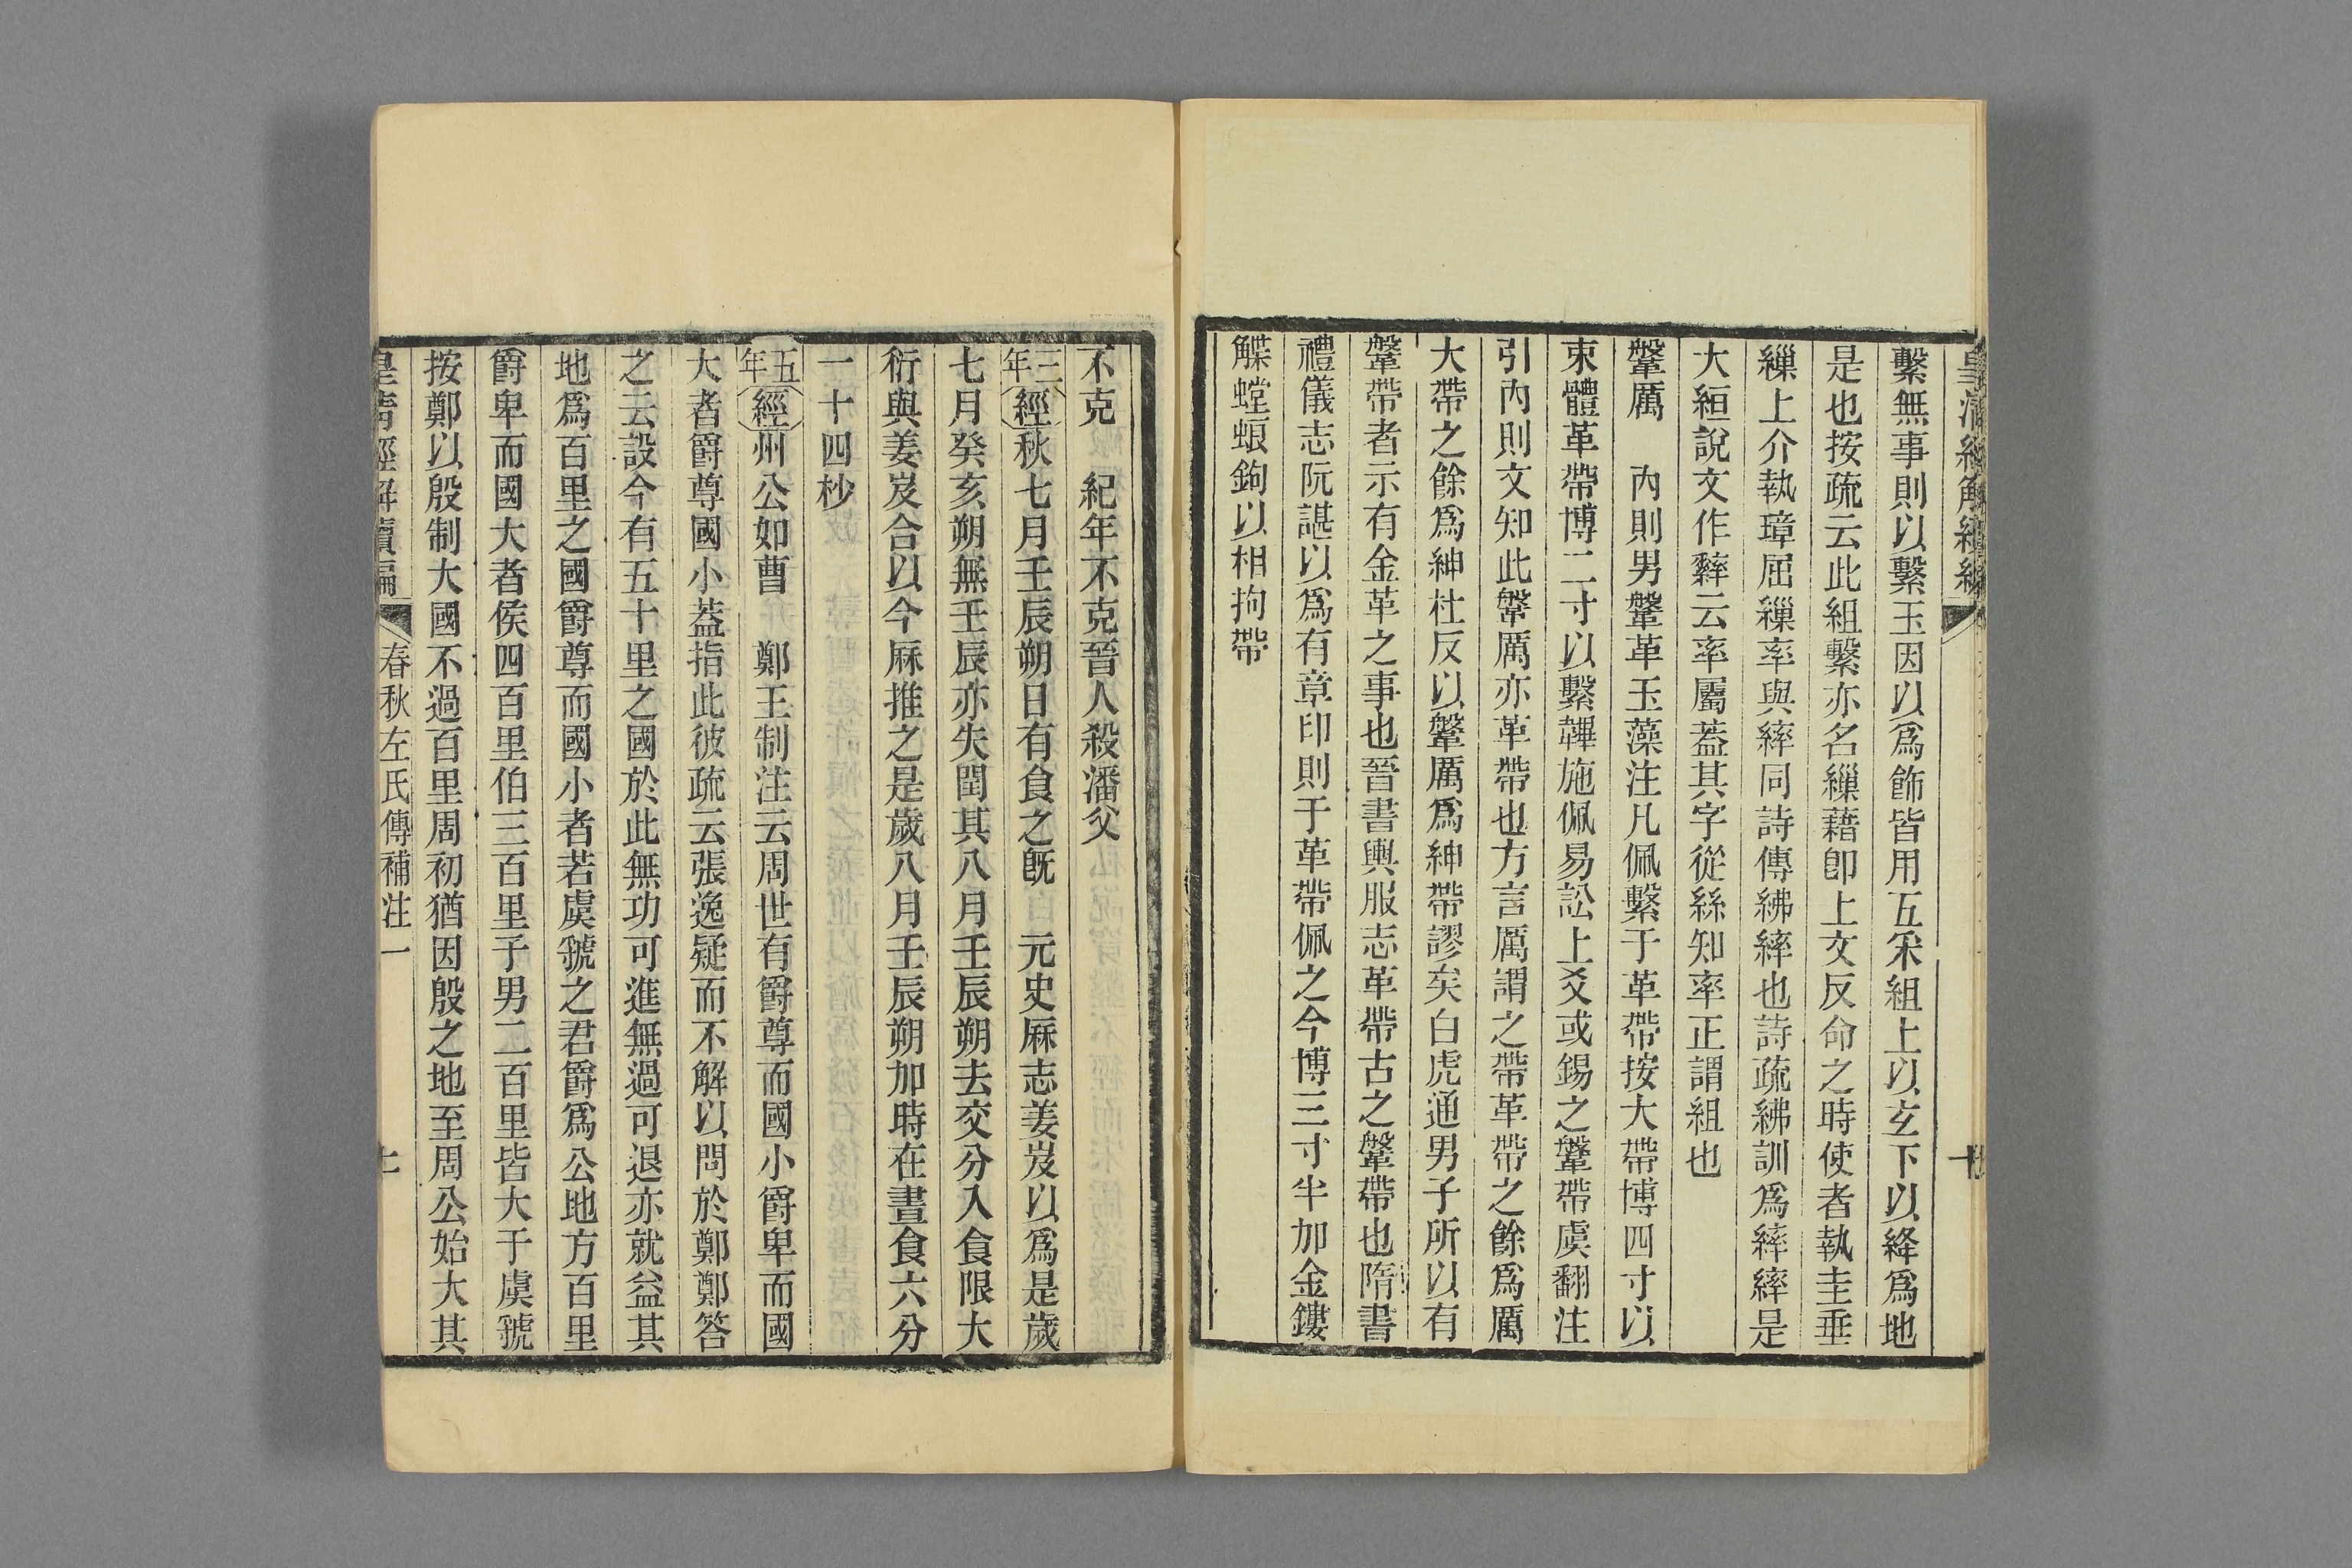 皇清經解續編
十
繫無事則以繫玉因以爲飾皆用五采組上以玄下以絳爲地
是也按疏云此組繫亦名繅藉卽上文反命之時使者執圭垂
繅上介執璋屈繅率與繂同詩傳紼繂也詩疏紼訓爲繂繂是
大絙說文作䌛云率屬葢其字從絲知率正謂組也
鞶厲　內則男鞶革玉藻注凡佩繫于革帶按大帶博四寸以
束體革帶博二寸以繫韠施佩易訟上爻或錫之鞶帶虞翻注
引內則文知此鞶厲亦革帶也方言厲謂之帶革帶之餘爲厲
大帶之餘爲紳杜反以鞶厲爲紳帶謬矣白虎通男子所以有
鞶帶者示有金革之事也晉書輿服志革帶古之鞶帶也隋書
禮儀志阮諶以爲有章印則于革帶佩之今博三寸半加金鏤
䚢螳蜋鉤以相拘帶
不克　紀年不克晉人殺潘父
三年經秋七月壬辰朔日有食之旣　元史厤志姜岌以爲是歲
七月癸亥朔無壬辰亦失閏其八月壬辰朔去交分入食限大
衍與姜岌合以今厤推之是歲八月壬辰朔加時在晝食六分
一十四秒
五年經州公如曹　鄭王制注云周世有爵尊而國小爵卑而國
大者爵尊國小葢指此彼疏云張逸疑而不解以問於鄭鄭答
之云設今有五十里之國於此無功可進無過可退亦就益其
地爲百里之國爵尊而國小者若虞虢之君爵爲公地方百里
爵卑而國大者侯四百里伯三百里子男二百里皆大于虞虢
按鄭以殷制大國不過百里周初猶因殷之地至周公始大其
皇清經解續編
春秋左氏傳補注一